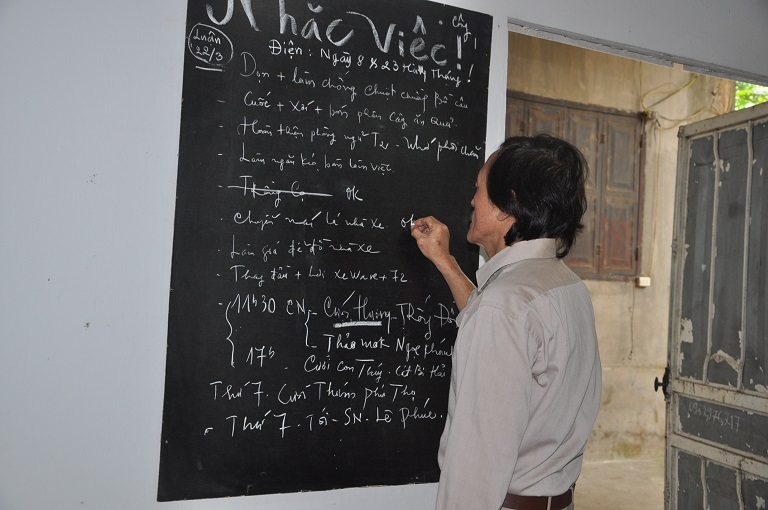 Nhắc Việc!
Luân 22/3
Điện: Ngày 8 & 23 Hàng Tháng!
Dọn + làm chống chuột chuồng Bồ câu
- Cuốc + xới + bón phân cây ăn quả.
- Hoàn thiện phòng ngủ T2
- Làm ngăn kéo bàn làm việc.
- Trồng Cọ OK
- chuyển mái lá nhà xe. ok
- Làm giá để đồ nhà xe
- Thay dầu + lốp xe Wave + 72
- 11h30 CN - Cưới Hương
- Thảo mok Ngọc
17h - Cưới con Thúy. Cát Bi
Thứ 7. Cưới Thắm phú Thọ
- Thứ 7. Tối - SN. Lê Phúc.